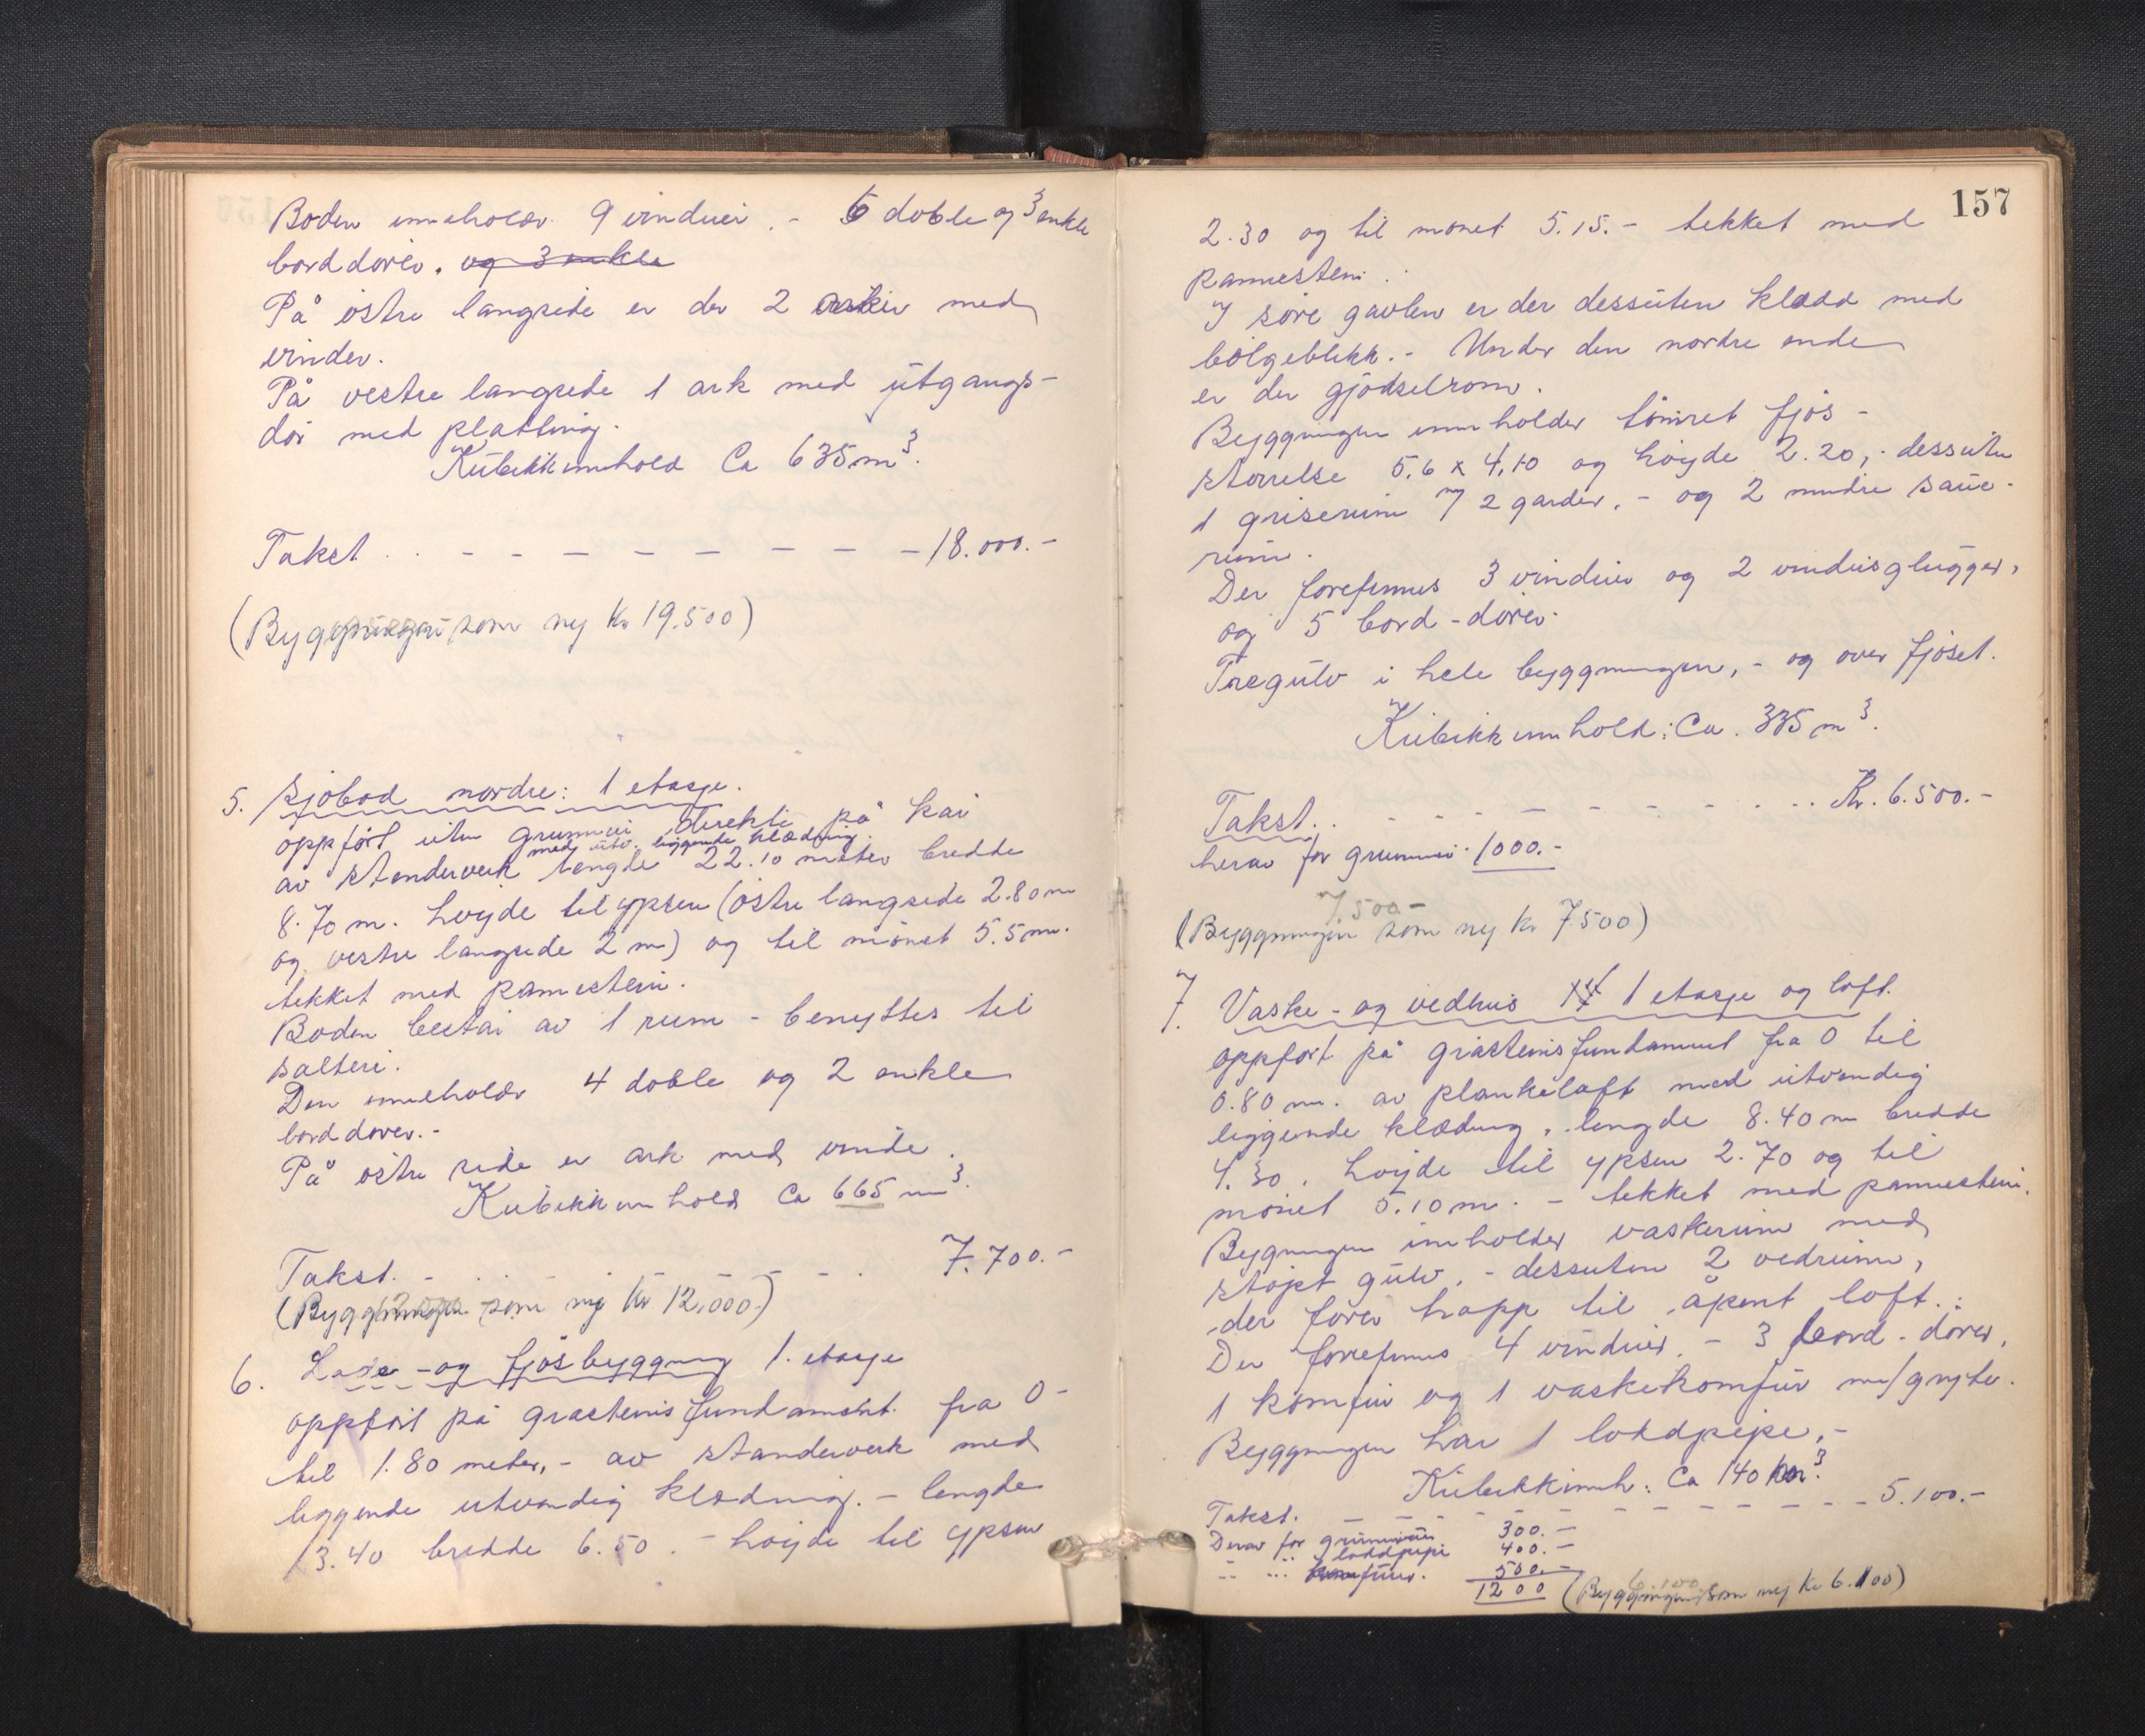 Boden inneholder 9 vinduer. - 6 doble og 3 enkle
borddører. og 3 enkle
På østre langside er der 2 arker med
vinder.
På vestre langside 1 ark med utgangs-
dør med platting.
Kubikkinnhold Ca 635 m³.
Takst . . - - - - - - - - 18.000.-
(Byggningen som ny kr 19.500)
5. Sjøbod nordre: 1 etasje.
oppført uten grunnmur direkte på kai
med utv. liggende klædning.
av stenderverk lengde 22.10 meter bredde
8.70 m. høyde til ypsen (østre langside 2.80 m
og vestre langside 2 m) og til mønet 5.5 m.
tekket med pannestein.
Boden består av 1 rum - benyttes til
salteri.
Den inneholder 4 doble og 2 enkle
borddører.-
På østre side er ark med vinde.
Kubikkinnhold Ca 665 m³.
Takst. - . . - - - - - . 7.700.-
(Byggningen som ny kr 12.000.)
6. Løe - og fjøsbyggning 1. etasje
oppført på gråstensfundament fra 0 -
til 1.80 meter, - av standerverk med
liggende utvendig klædning. - lengde
13.40 bredde 6.50. - høyde til ypsen
157
2.30 og til mønet 5.15. - tekket med
pannestein.
I søre gavlen er der dessuten klædd med
bølgeblikk. - Under den nordre ende
er der gjødselrom.
Byggningen innholder tømret fjøs -
størrelse 5.6 x 4,10 og høyde 2.20, - dessuten
1 griserum m/ 2 garder, - og 2 mindre saue-
rum.
Der forefinnes 3 vinduer og 2 vindusglugger,
og 5 bord-dører.
Tregulv i hele byggningen, - og over fjøset.
Kubikkinnhold: Ca. 335 m³.
Takst. . - - - - - - . . . Kr. 6.500.-
herav for grunnmur. 1000.-
7.500-
(Byggningen som ny kr 7.500)
7. Vaske - og vedhus 1 etasje og loft.
oppført på gråstensfundament fra 0 til
0.80 m. av plankelaft med utvendig
liggende klædning, lengde 8.40 m bredde
4.30. høyde til ypsen 2.70 og til
mønet 5.10 m. - tekket med pannestein.
Bygningen innholder vaskerum med
støpt gulv. - dessuten 2 vedrum,
der fører trapp til åpent loft.
Der forefinnes 4 vinduer. - 3 bord-dører,
1 komfur og 1 vaskekomfur m/gryte.
Byggningen har 1 loddpipe. -
Kubikkinnh: Ca 140 m³.
Takst. - - - - - - - - - - 5.100.-
Derav for grunnmur 300.-
loddpipe 400.-
-- ... komfurer. 500.-
1200
6.100
(Byggningen som ny kr 6.100)